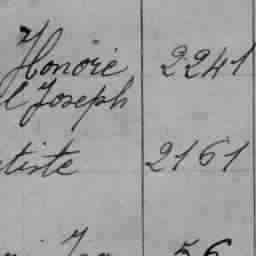 Honoré 2241
l Joseph
tiste 2161
56